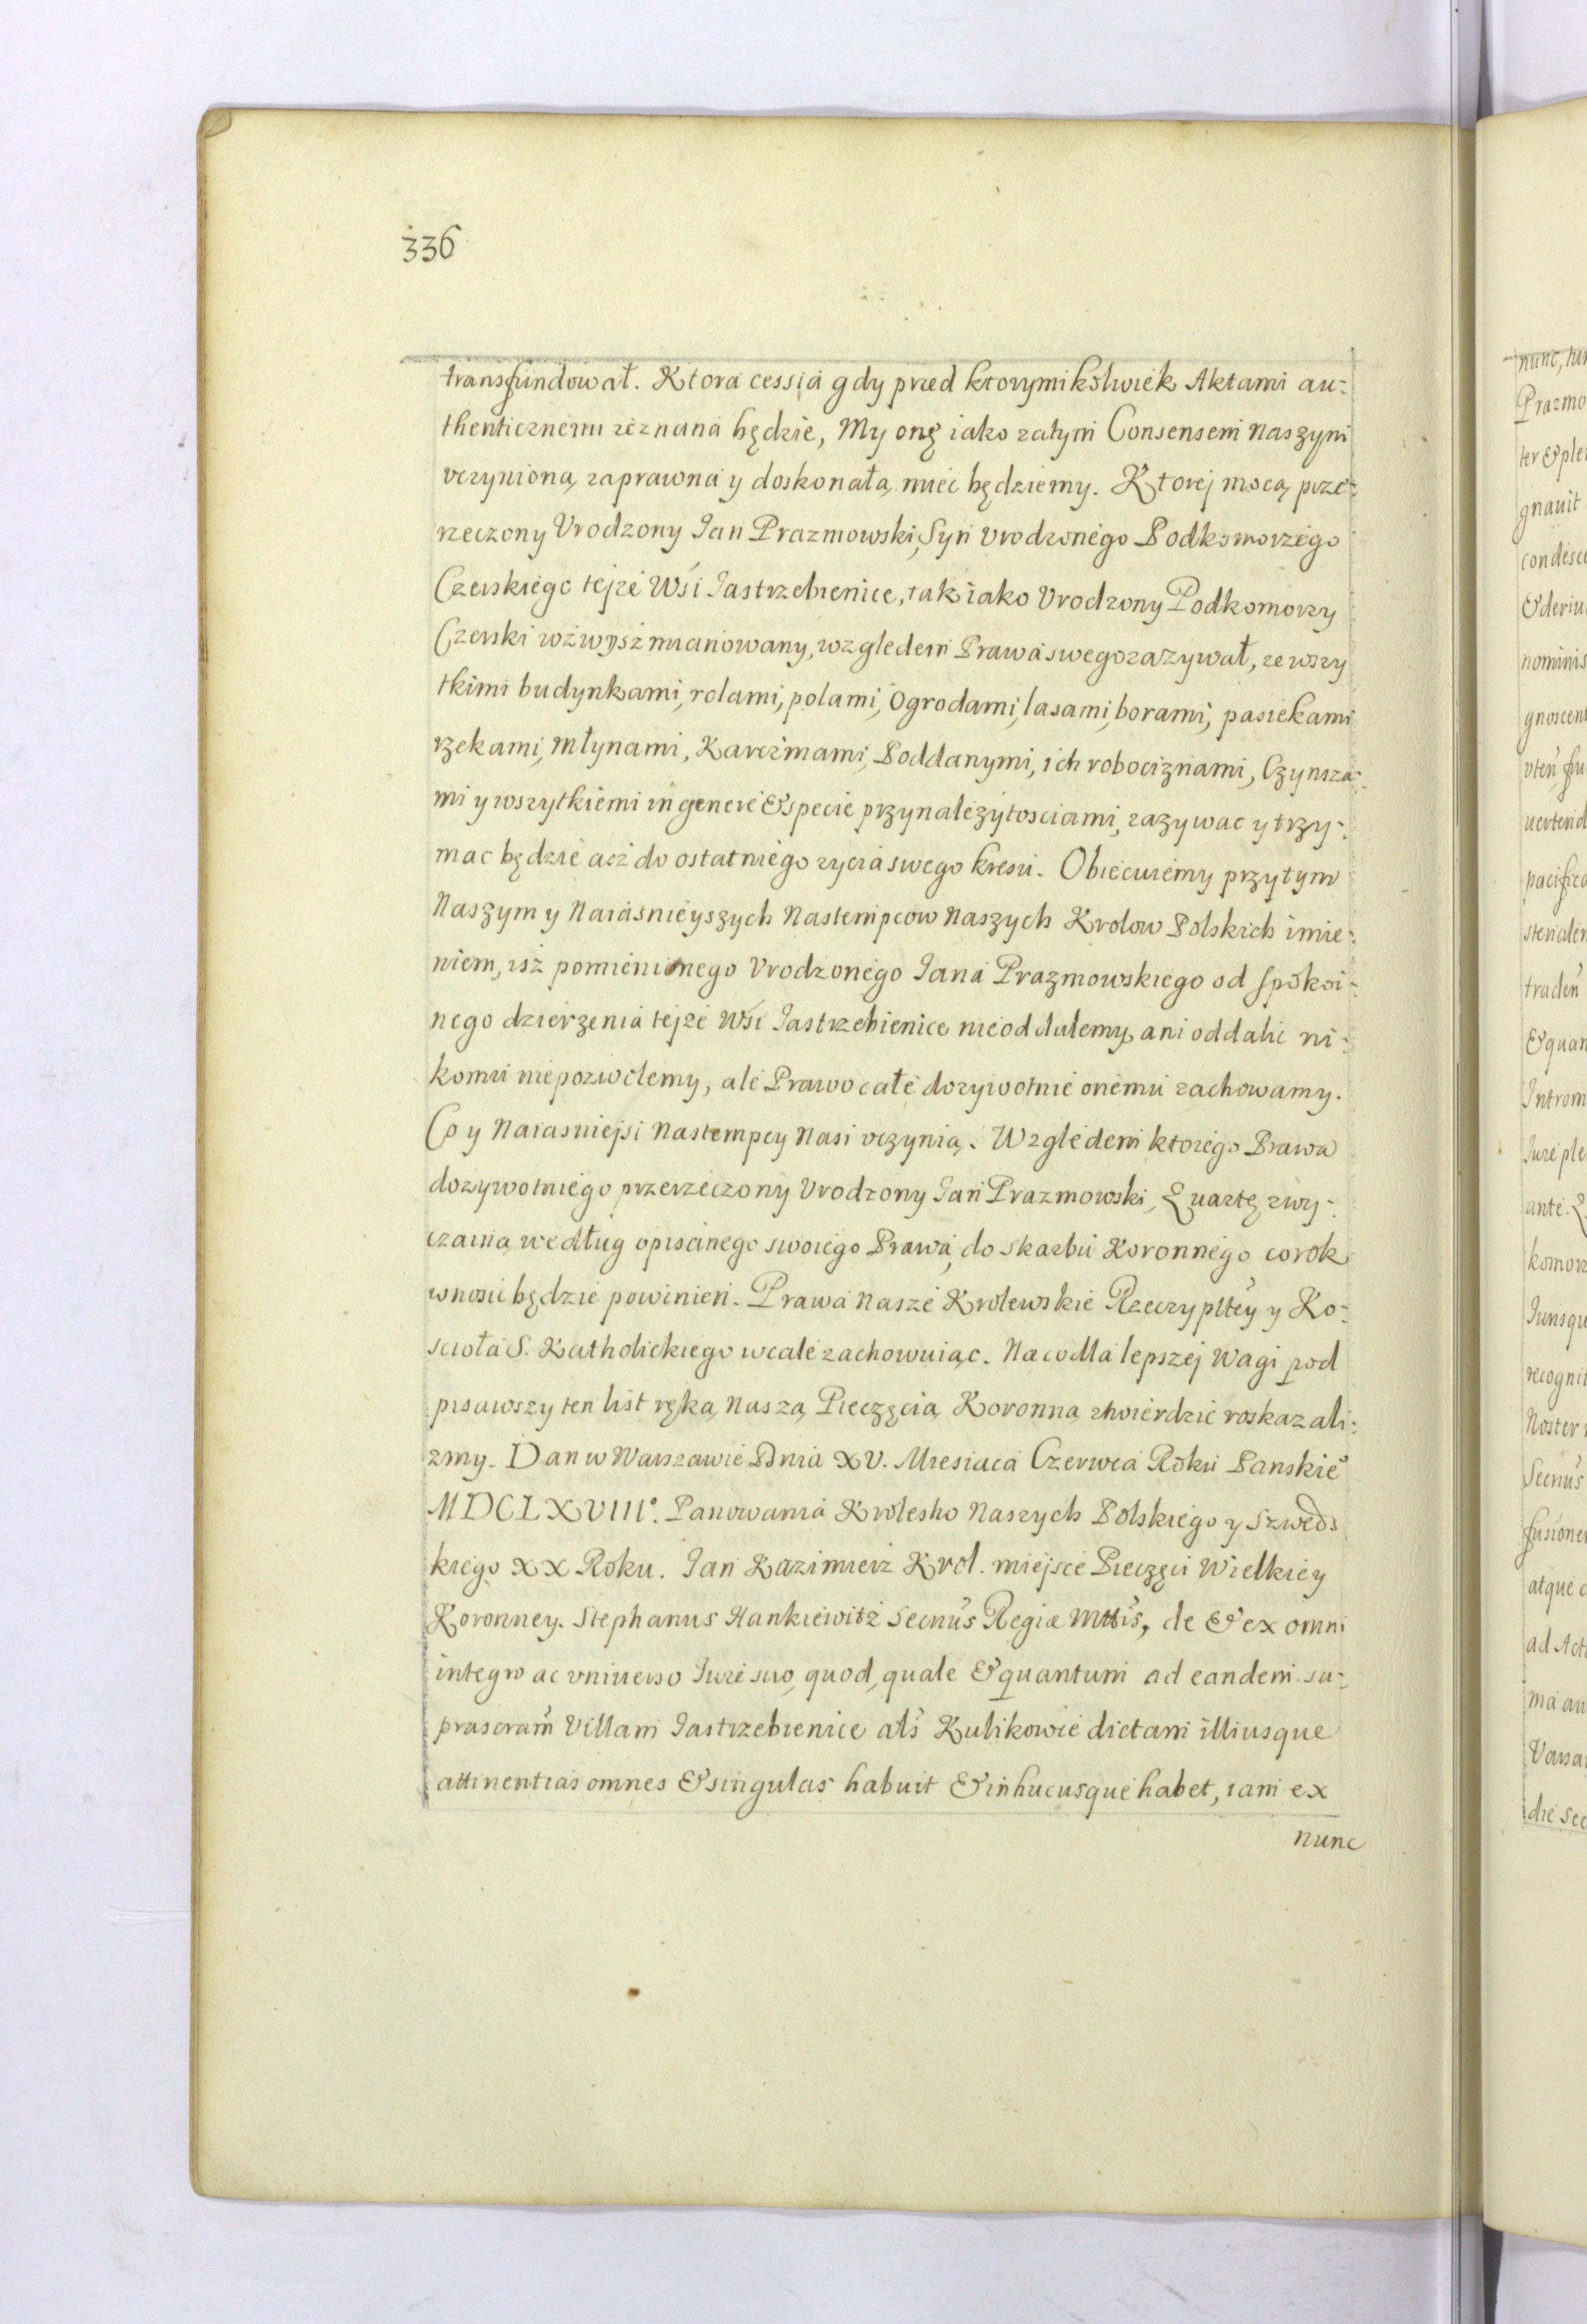 336
transfundował. Ktora cessia gdy przed ktorymikolwiek Aktami au-
thenticznemi zeznana będzie, My onę iako zatym Consensem Naszym
vczynioną, zaprawną y doskonałą, mieć będziemy. Ktorej mocą, prze-
rzeczony Vrodzony Ian Prazmowski, Syn Vrodzonego Podkomorzego
Czerskiego tejze Wśi Iastrzebienice, tak iako Vrodzony Podkomorzy
Czerski wźwysz mianowany, względem Prawa swego zazywał, ze wszy
tkimi budynkami, rolami, polami, Ogrodami, lasami, borami, pasiekami
rzekami, Młynami, Karczmami, Poddanymi, ich robociznami, Czynsza-
mi y wszytkiemi in genere & specie przynalezytosciami, zazywac y trzy-
mac będzie asz do ostatniego zycia swego kresu. Obiecuiemy przytym
Naszym y Naiasnieyszych Nastempcow Naszych Krolow Polskich imie-
niem, isz pomienionego Vrodzonego Iana Prazmowskiego od spokoi-
nego dzierzenia tejze Wśi Iastrzebienice nieoddalemy, ani oddalic ni-
komu niepozwolemy, ale Prawo całe dozywotnie onemu zachowamy.
Co y Naiasniejsi Nastempcy Nasi vczynią. Względem ktorego Prawa
dozywotniego przerzeczony Vrodzony Ian Prazmowski, Quartę zwy-
czaina według opisanego swoiego Prawa, do skarbu Koronnego corok
wnosic będzie powinien. Prawa Nasze Krolewskie Rzeczypltey y Ko-
scioła S. Katholickiego wcale zachowuiąc. Na co dla lepszej Wagi pod
pisawszy ten list ręką Naszą, Pieczęcią Koronną ztwierdzic roskazali-
zmy. Dan w Warszawie Dnia XV. Miesiaca Czerwca Roku Panskie°
MDCLXVIII°. Panowania Krolestw Naszych Polskiego y Szweds
kiego XX Roku. Ian Kazimierz Krol. miejsce Pieczęci Wielkiey
Koronney. Stephanus Hankiewitz Secnus Regiæ Mttis, de & ex omni
integro ac vniuerso Iure suo, quod, quale & quantum ad eandem su-
prascram Villam Iastrzebienice als Kulikowie dictam illiusque
attinentias omnes & singulas habuit & in hucusque habet, iam ex
nunc